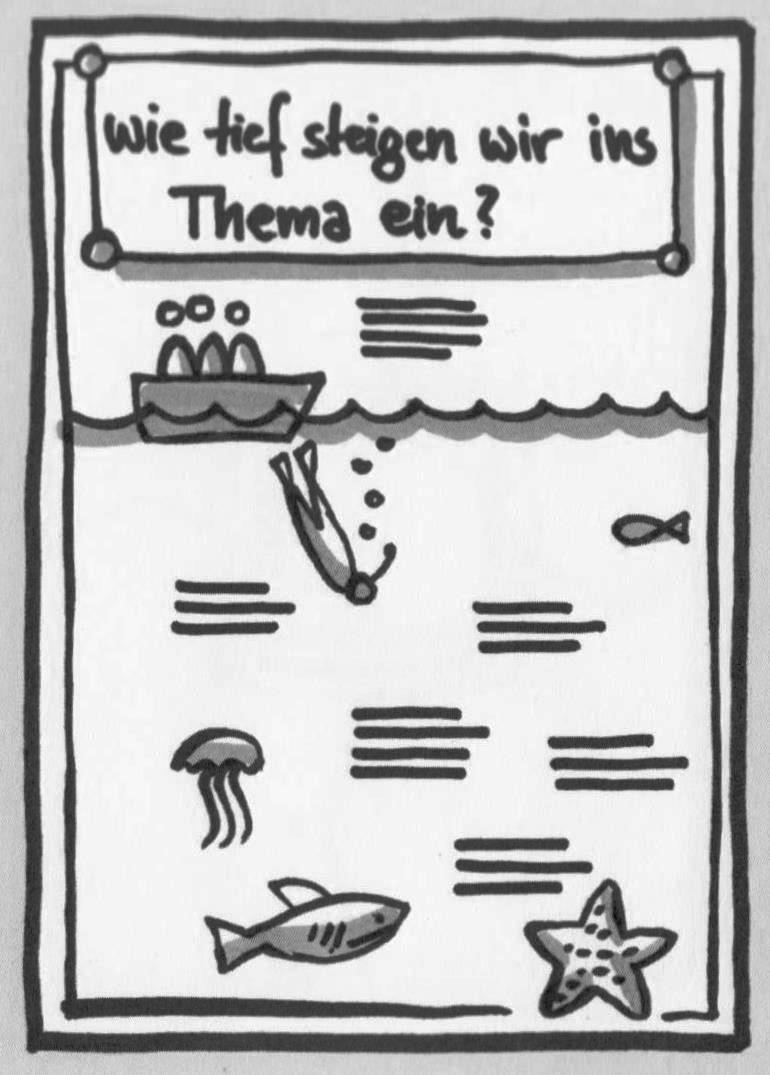 Wie tief steigen wir ins
Thema ein?